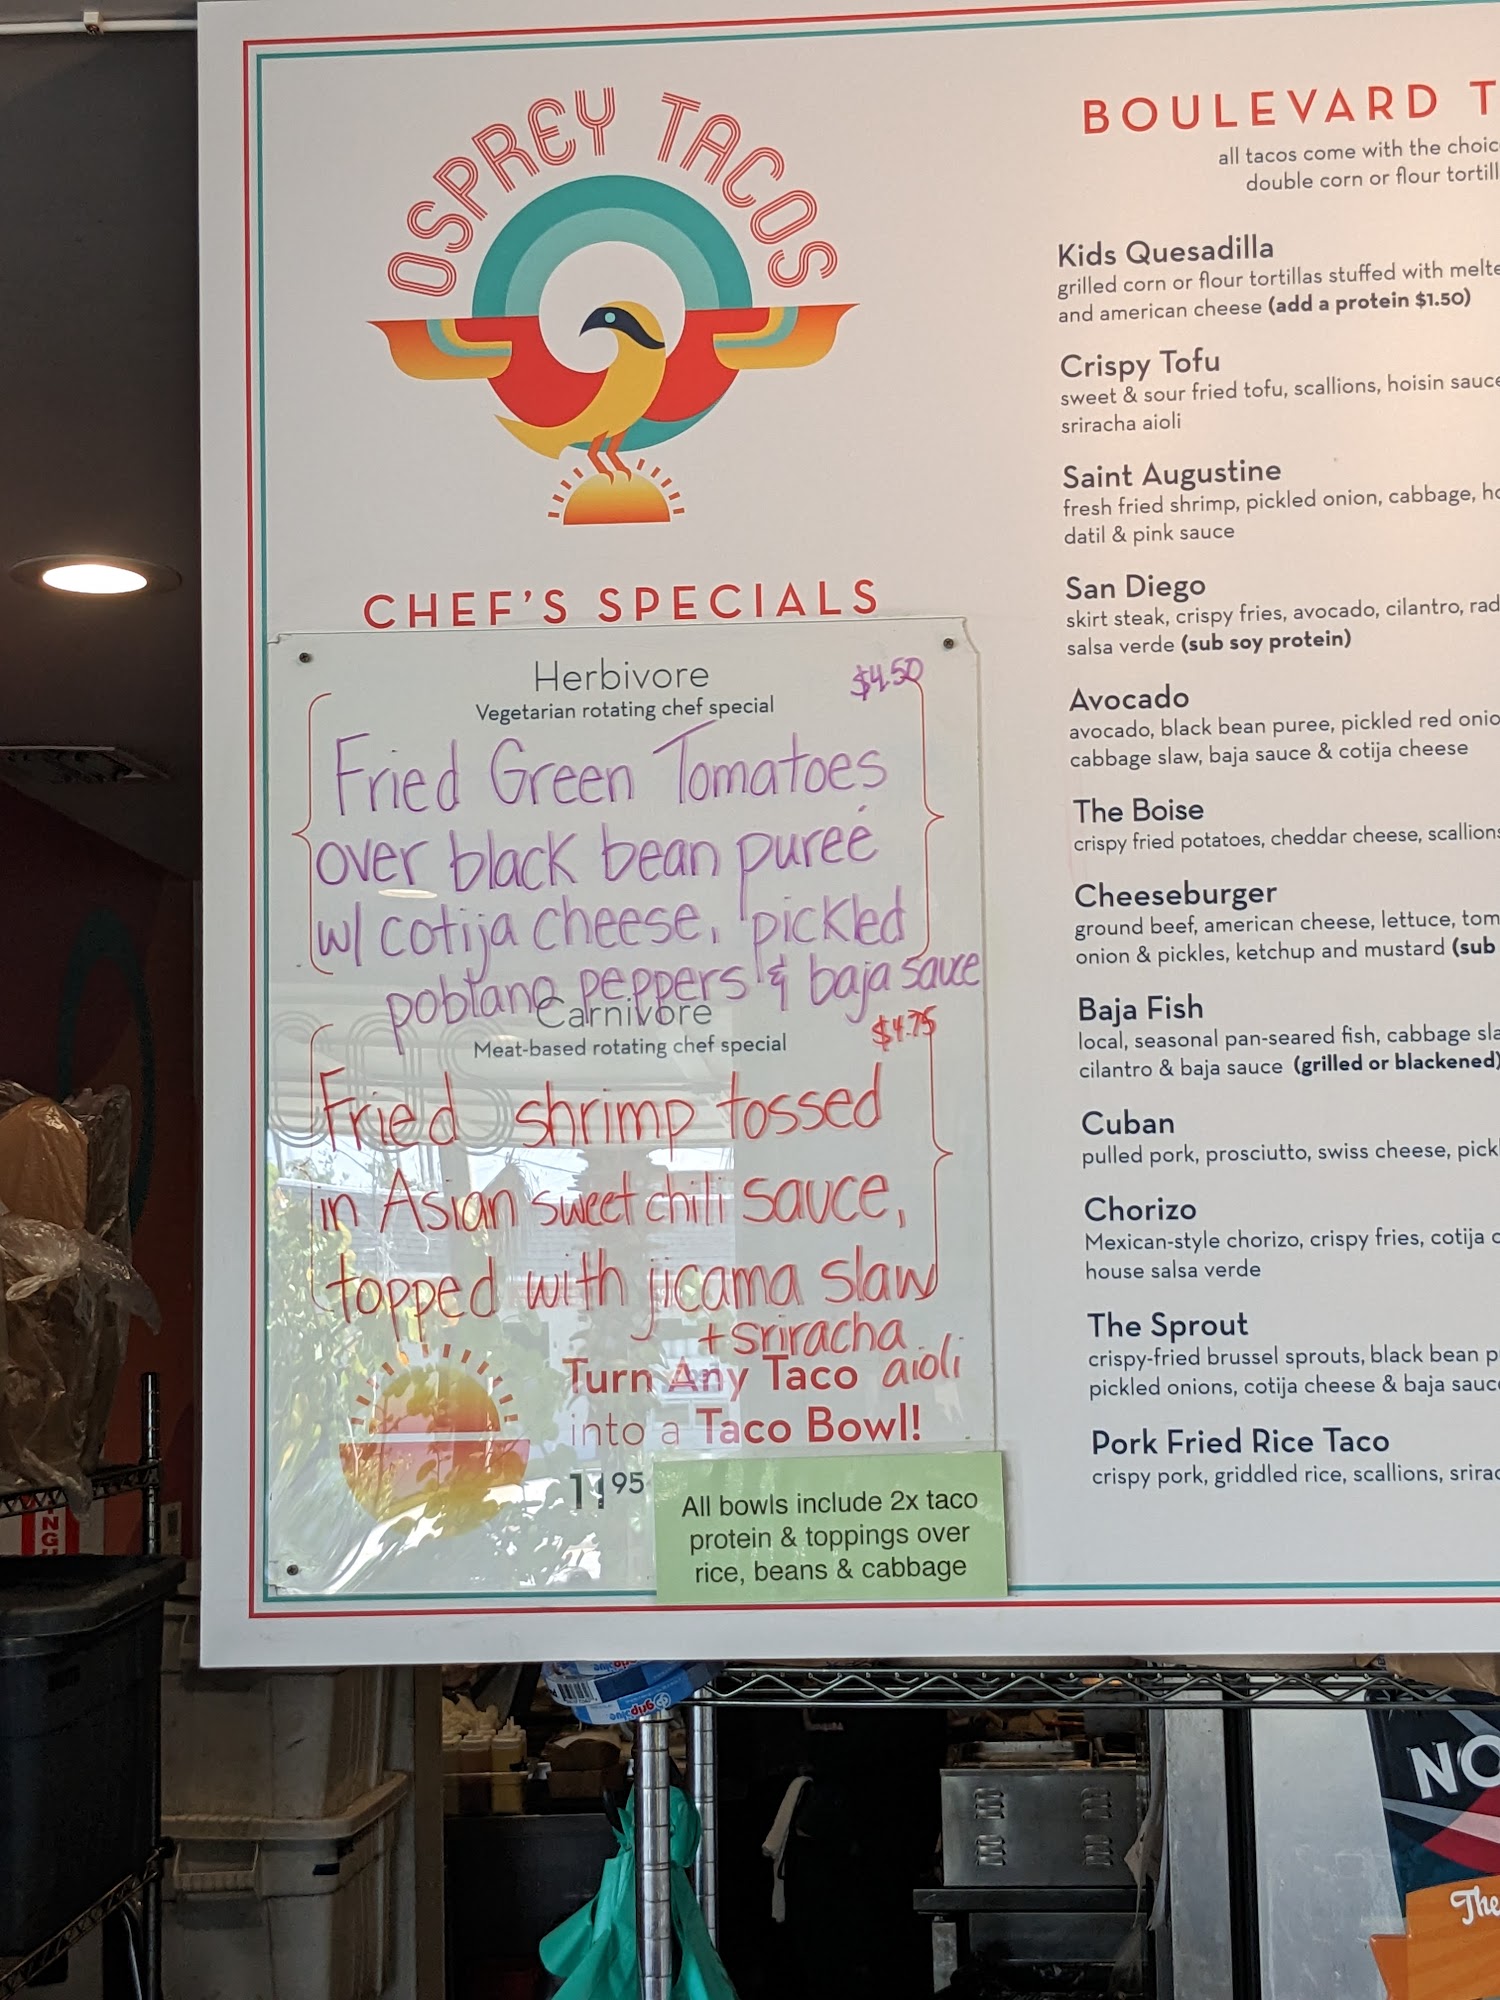 OSPREY TACOS
CHEF'S SPECIALS
Herbivore
$4.50
Vegetarian rotating chef special
Fried Green Tomatoes
over black bean pureé
w/ cotija cheese, pickled
poblano peppers & baja sauce
Carnivore
$4.75
Meat-based rotating chef special
Fried shrimp tossed
in Asian sweet chili sauce,
topped with jicama slaw
+ sriracha
aioli
Turn Any Taco
into a Taco Bowl!
11.95
All bowls include 2x taco
protein & toppings over
rice, beans & cabbage
BOULEVARD T
all tacos come with the
double corn or flour
Kids Quesadilla
grilled corn or flour tortillas stuffed with
and american cheese (add a protein $1.50)
Crispy Tofu
sweet & sour fried tofu, scallions, hoisin sauce
sriracha aioli
Saint Augustine
fresh fried shrimp, pickled onion, cabbage,
datil & pink sauce
San Diego
skirt steak, crispy fries, avocado, cilantro,
salsa verde (sub soy protein)
Avocado
avocado, black bean puree, pickled red
cabbage slaw, baja sauce & cotija cheese
The Boise
crispy fried potatoes, cheddar cheese, scallions
Cheeseburger
ground beef, american cheese, lettuce,
onion & pickles, ketchup and mustard (sub
Baja Fish
local, seasonal pan-seared fish, cabbage
cilantro & baja sauce (grilled or blackened)
Cuban
pulled pork, prosciutto, swiss cheese,
Chorizo
Mexican-style chorizo, crispy fries, cotija
house salsa verde
The Sprout
crispy-fried brussel sprouts, black bean
pickled onions, cotija cheese & baja sauce
Pork Fried Rice Taco
crispy pork, griddled rice, scallions,
NO
The